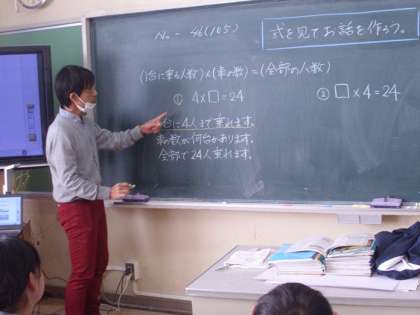 No. 46(105)
式を見てお話を作ろう。
(1台に乗る人数)×(車の数)=(全部の人数)
① 4×□=24
② □×4=24
台に4人まで乗れます。
車の数が何台かあります。
全部で24人乗れます。